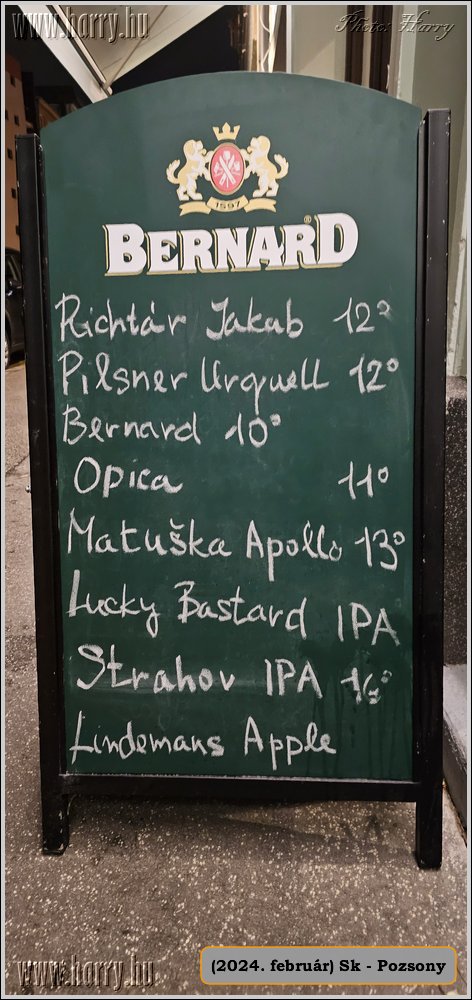 www.horry.hu
Photo: Harry
1597
BERNARD
Richtár Jakub 12°
Pilsner Urquell 12°
Bernard 10°
Opica 11°
Matuška Apollo 13°
Lucky Bastard IPA
Strahov IPA 16°
Lindemans Apple
www.horry.hu
(2024. február) Sk - Pozsony